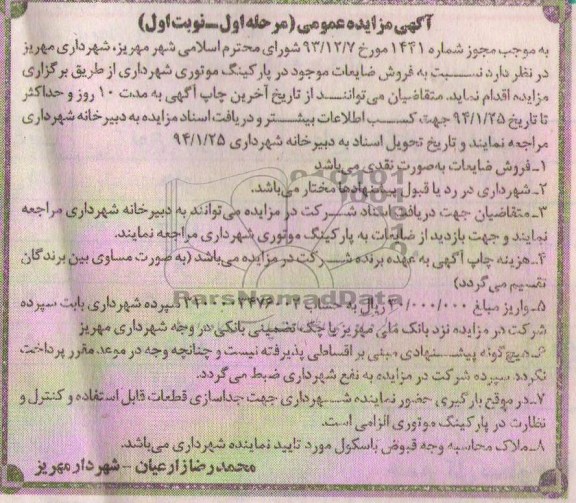 آگهی مزایده عمومی (مرحله اول ـ نوبت اول)
به موجب مجوز شماره ۱۴۴۱ مورخ ۹۳/۱۲/۷ شورای محترم اسلامی شهر مهریز، شهرداری مهریز
در نظر دارد نسبت به فروش ضایعات موجود در پارکینگ موتوری شهرداری از طریق برگزاری
مزایده اقدام نماید. متقاضیان می‌توانند از تاریخ آخرین چاپ آگهی به مدت ۱۰ روز و حداکثر
تا تاریخ ۹۴/۱/۲۵ جهت کسب اطلاعات بیشتر و دریافت اسناد مزایده به دبیرخانه شهرداری
مراجعه نمایند و تاریخ تحویل اسناد به دبیرخانه شهرداری ۹۴/۱/۲۵
۱ـ فروش ضایعات به‌صورت نقدی می‌باشد
۲ـ شهرداری در رد یا قبول پیشنهادها مختار می‌باشد.
۳ـ متقاضیان جهت دریافت اسناد شرکت در مزایده می‌توانند به دبیرخانه شهرداری مراجعه
نمایند و جهت بازدید از ضایعات به پارکینگ موتوری شهرداری مراجعه نمایند.
۴ـ هزینه چاپ آگهی به عهده برنده شرکت در مزایده می‌باشد (به صورت مساوی بین برندگان
تقسیم می‌گردد)
۵ـ واریز مبلغ ریال به حساب سپرده شهرداری بابت سپرده
شرکت در مزایده نزد بانک ملی مهریز یا چک تضمینی بانکی در وجه شهرداری مهریز
۶ـ هیچ‌گونه پیشنهادی مبنی بر اقساطی پذیرفته نیست و چنانچه وجه در موعد مقرر پرداخت
نگردد سپرده شرکت در مزایده به نفع شهرداری ضبط می‌گردد.
۷ـ در موقع بارگیری حضور نماینده شهرداری جهت جداسازی قطعات قابل استفاده و کنترل و
نظارت در پارکینگ موتوری الزامی است.
۸ـ ملاک محاسبه وجه قبوض باسکول مورد تایید نماینده شهرداری می‌باشد.
محمدرضا زارعیان - شهردار مهریز
ParsNamadData